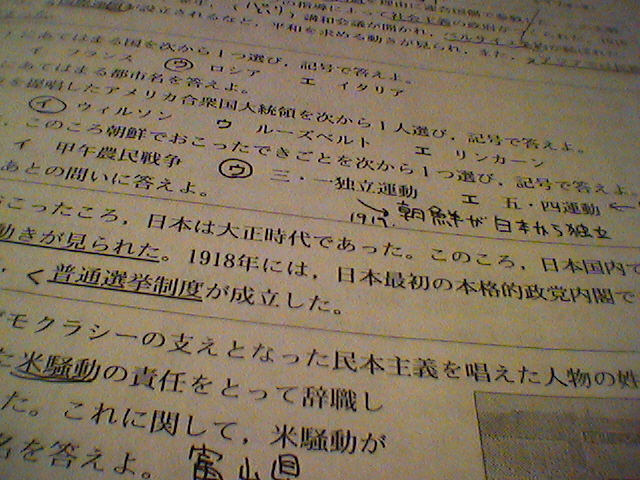 講和会議が開かれ、ベルサイユ
が設立されるなど、平和を求める動きが見られ、また、
にあてはまる国を次から1つ選び、記号で答えよ。
イ フランス ウ ロシア エ イタリア
にあてはまる都市名を答えよ。
を提唱したアメリカ合衆国大統領を次から1人選び、記号で答えよ。
イ ウィルソン ウ ルーズベルト エ リンカーン
このころ朝鮮でおこったできごとを次から1つ選び、記号で答えよ。
イ 甲午農民戦争 ウ 三・一独立運動 エ 五・四運動
1919. 朝鮮が日本から独立
あとの問いに答えよ。
こったころ、日本は大正時代であった。このころ、日本国内で
動きが見られた。1918年には、日本最初の本格的政党内閣で
く普通選挙制度が成立した。
モクラシーの支えとなった民本主義を唱えた人物の姓
米騒動の責任をとって辞職し
た。これに関して、米騒動が
名を答えよ。 富山県